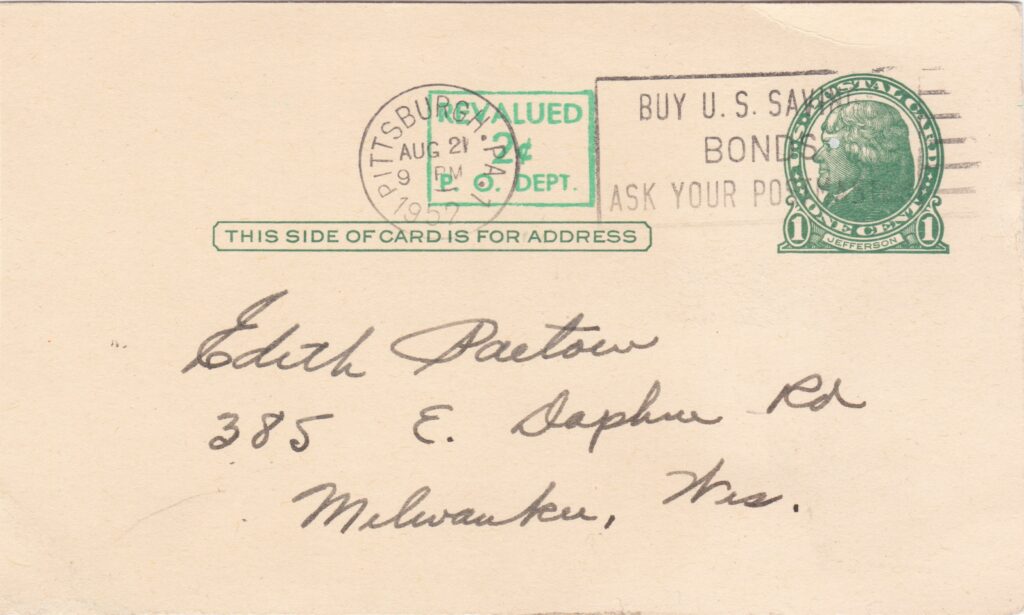 PITTSBURGH, PA. 1
AUG 21
9 PM
1952
REVALUED
2¢
P. O. DEPT.
BUY U. S.
BONDS
ASK YOUR
U.S. POSTAL CARD
ONE CENT
1 JEFFERSON 1
THIS SIDE OF CARD IS FOR ADDRESS
Edith Paetow
385 E. Daphne Rd
Milwaukee, Wis.